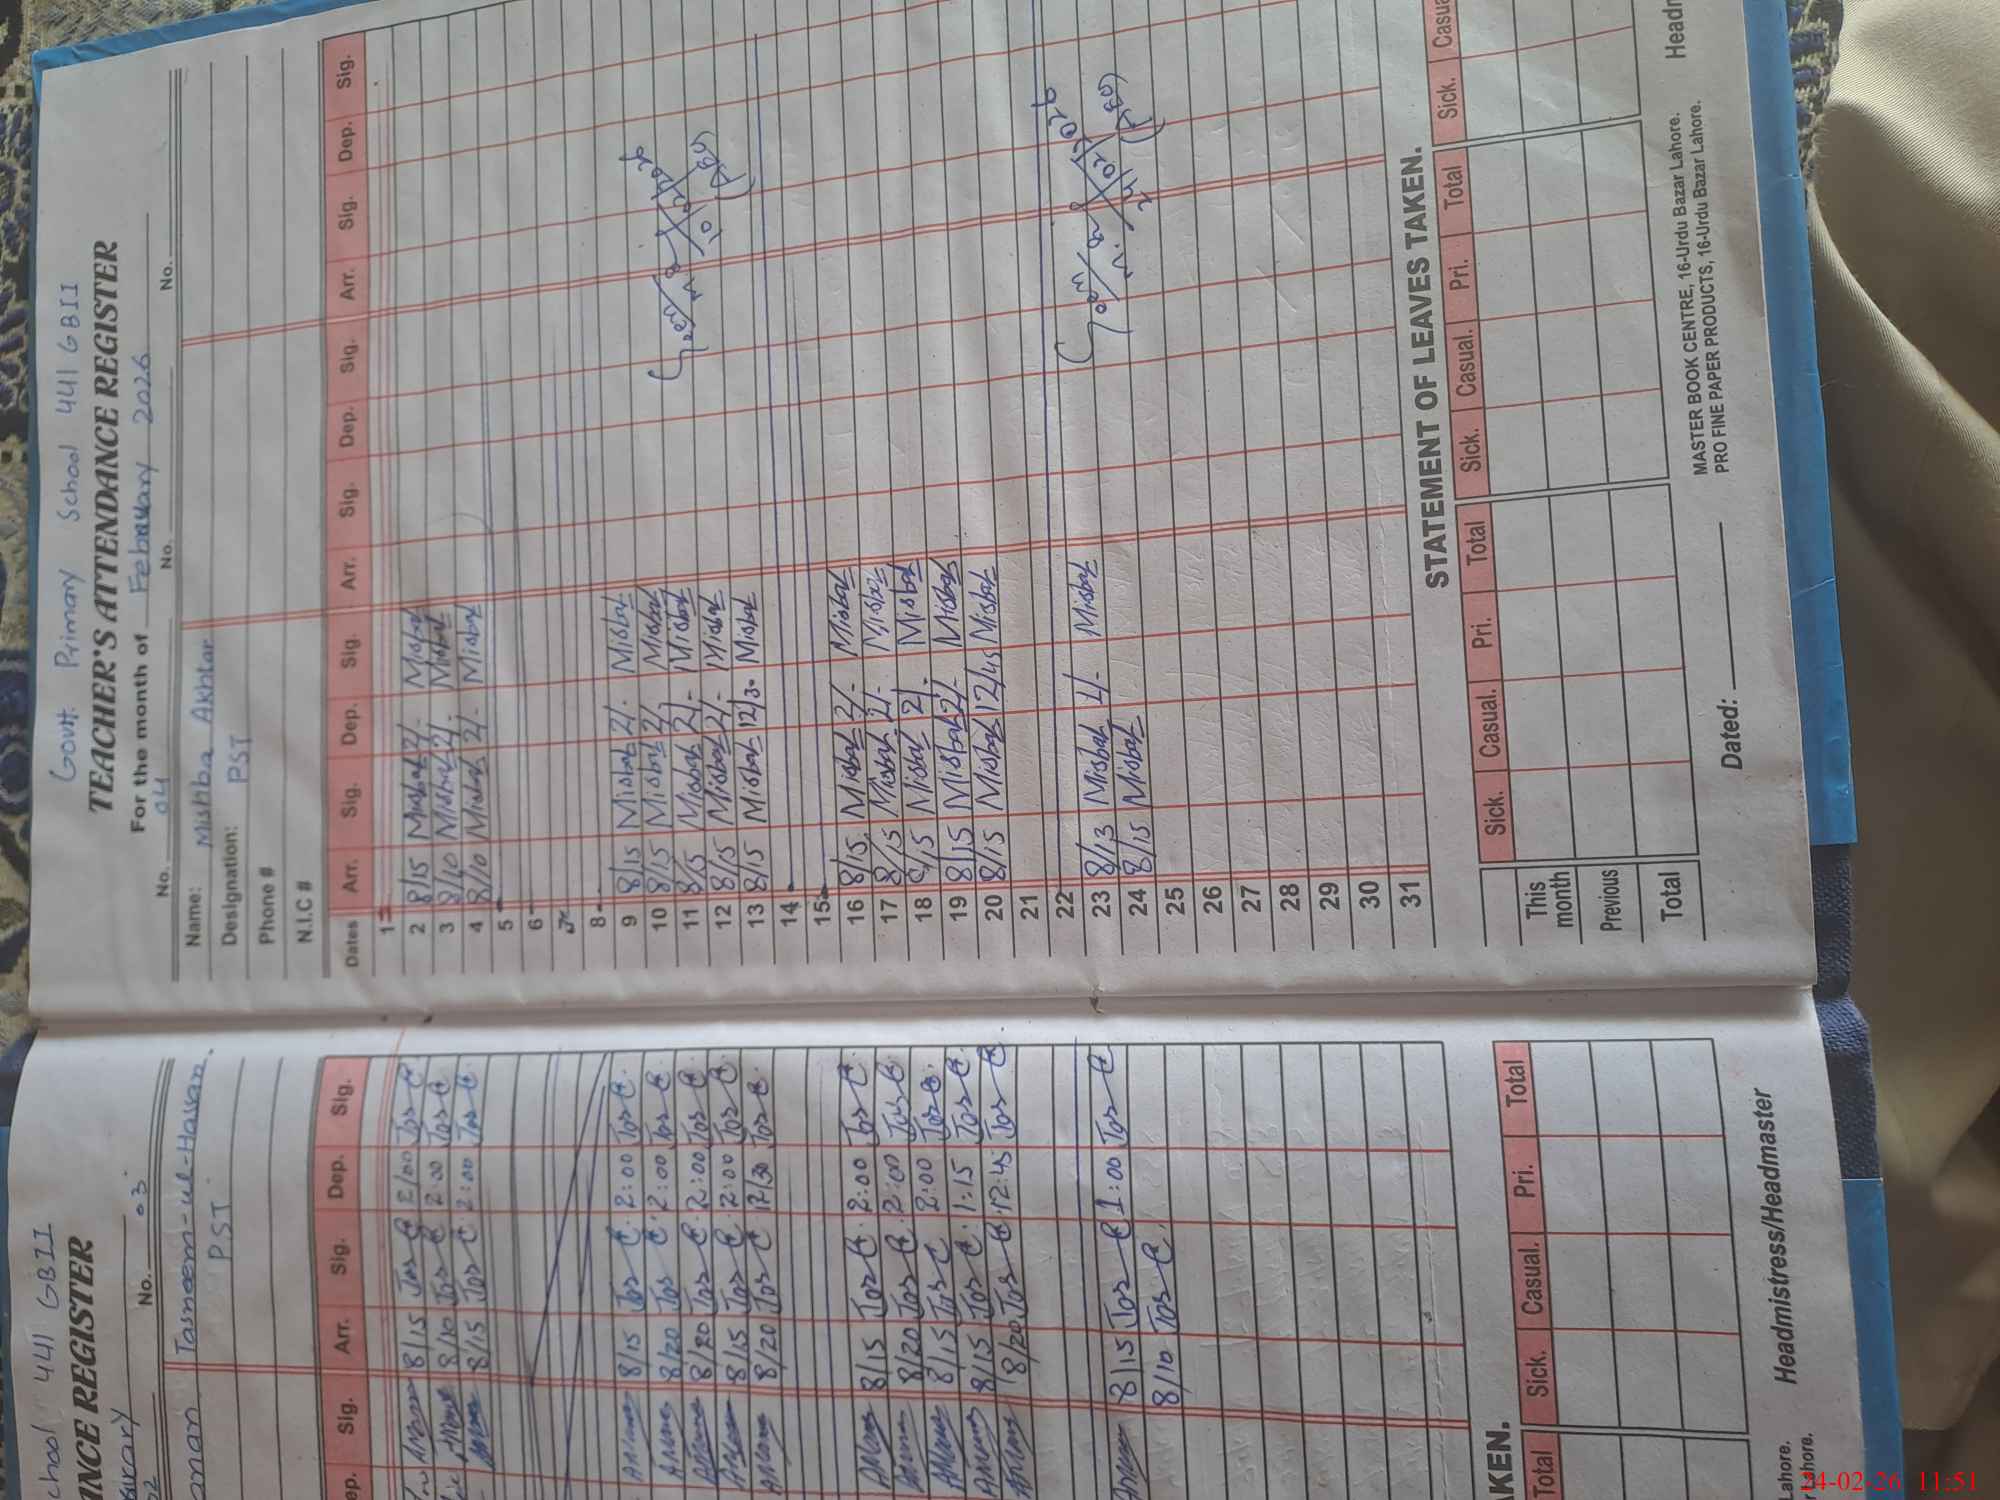 Govt. Primary School 441 GBII
TEACHER'S ATTENDANCE REGISTER
For the month of February 2026
No. 04 No. No.
Name: Mishba Akhtar
Designation: PST
Phone #
N.I.C #
Dates Arr. Sig. Dep. Sig. Arr. Sig. Dep. Sig. Arr. Sig. Dep. Sig.
1
2 8/15 Misbah 2/- Misbah
3 8/10 Misbah 2/- Misbah
4 8/10 Misbah 2/- Misbah
5
6
7
8
9 8/15 Misbah 2/- Misbah
10 8/15 Misbah 2/- Misbah
11 8/15 Misbah 2/- Misbah
12 8/15 Misbah 2/- Misbah
13 8/15 Misbah 12/30 Misbah
14
15
16 8/15 Misbah 2/- Misbah
17 8/15 Misbah 2/- Misbah
18 8/15 Misbah 2/- Misbah
19 8/15 Misbah 2/- Misbah
20 8/15 Misbah 12/45 Misbah
21
22
23 8/13 Misbah 1/- Misbah
24 8/15 Misbah
25
26
27
28
29
30
31
Seen
10/02/2026
(AEO)
Seen
24/02/2026
(AEO)
STATEMENT OF LEAVES TAKEN.
Sick. Casual. Pri. Total Sick. Casual. Pri. Total Sick.
This month
Previous
Total
MASTER BOOK CENTRE, 16-Urdu Bazar Lahore.
PRO FINE PAPER PRODUCTS, 16-Urdu Bazar Lahore.
Dated:
chool 441 GBII
NCE REGISTER
No. 03
Tasneem-ul-Hassan
PST
ep. Sig. Arr. Sig. Dep. Sig.
8/15 2/00
8/10 2:00
8/15 2:00
8/15 2:00
8/20 2:00
8/20 2:00
8/15 2:00
8/20 12/30
8/15 2:00
8/20 2:00
8/15 2:00
8/15 1:15
8/20 12:45
8/15 1:00
8/10
AKEN.
Total Sick. Casual. Pri. Total
Headmistress/Headmaster
Lahore.
24-02-26 11:51